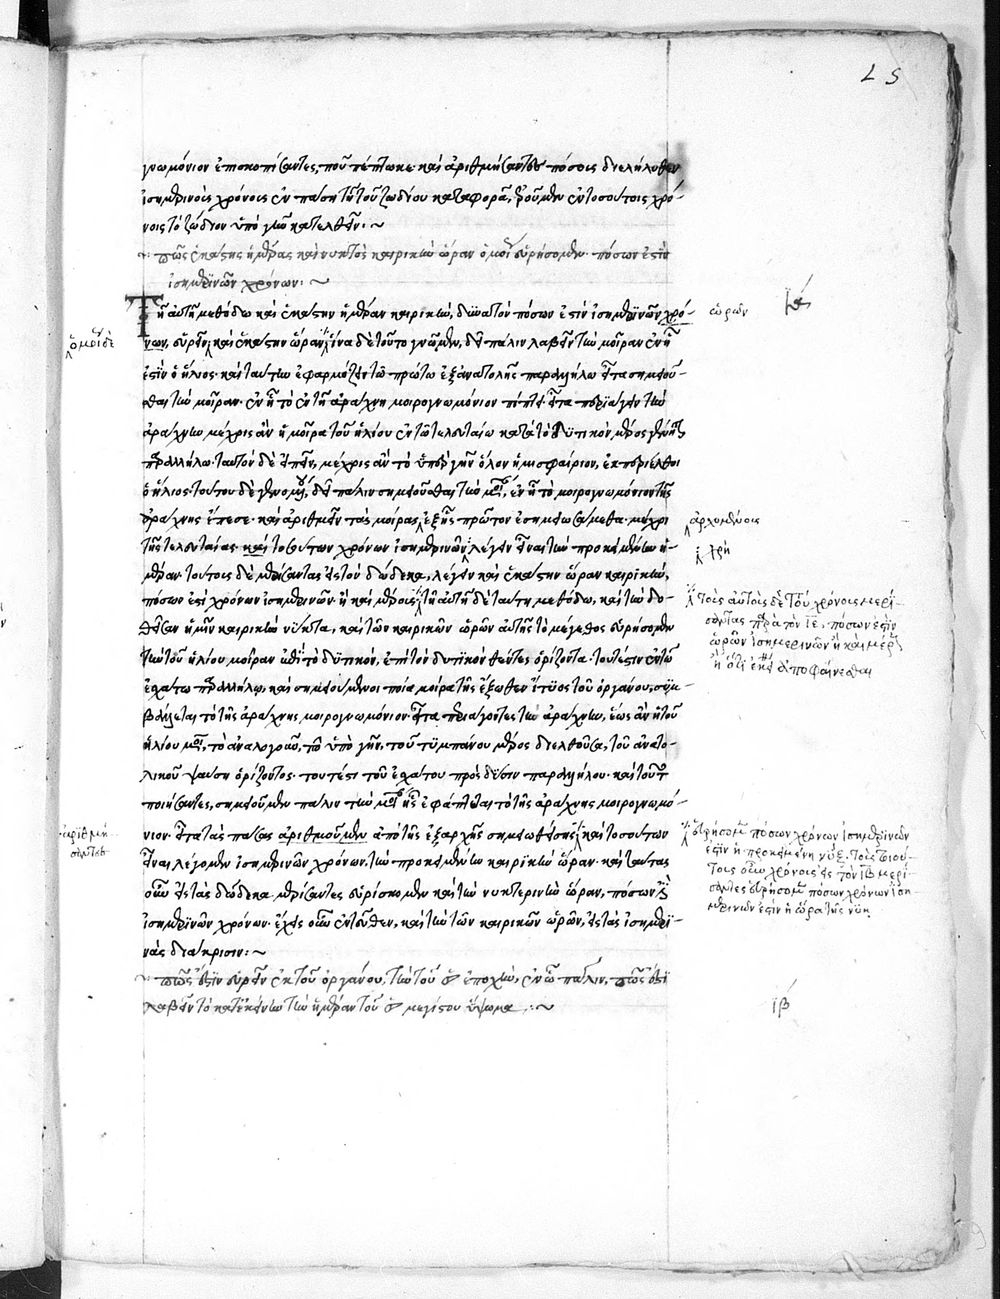 γνωμόνιον ἐπισκοπήσαντες, ποῦ πέπτωκε· καὶ ἀριθμήσαντες πόσοις διελήλυθεν
ἰσημερινοὺς χρόνοις ἐν πάσῃ τῇ τοῦ ζωδίου καταφορᾷ, ἐροῦμεν ἐν τοσούτοις χρό-
νοις τὸ ζώδιον ὑπὸ γῆν κατελθεῖν: ~
πῶς ἑκάστης ἡμέρας καὶ νυκτὸς καιρικὴν ὥραν ὁμοῦ εὑρήσομεν πόσων ἐστὶν
ἰσημερινῶν χρόνων: ~
Τῇ αὐτῇ μεθόδῳ καὶ ἑκάστην ἡμέραν καιρικὴν, δυνατὸν πόσων ἐστὶν ἰσημερινῶν χρό- ὡρῶν ια
νων, εὑρεῖν, καὶ ἑκάστην ὥραν. ἵνα δὲ τοῦτο γνῶμεν, δεῖ πάλιν λαβεῖν τὴν μοῖραν ἐν ᾗ
ἐστὶν ὁ ἥλιος· καὶ ταύτην ἐφαρμόζειν τῷ πρώτῳ ἐξ ἀνατολῆς παραλλήλῳ εἶτα σημειοῦ-
σθαι τὴν μοῖραν· ἐν ᾗ τὸ ἐν τῇ ἀράχνῃ μοιρογνωμόνιον πίπτει· εἶτα περιάγειν τὴν
ἀράχνην μέχρις ἂν ἡ μοῖρα τοῦ ἡλίου ἐν τῷ τελευταίῳ κατὰ τὸ δυτικὸν μέρος γένηται
παραλλήλῳ. ταυτὸν δὲ εἰπεῖν, μέχρις ἂν τὸ ὑπὲρ γῆν ὅλον ἡμισφαίριον, ἐκπεριέλθοι
ὁ ἥλιος· τούτου δὲ γενομένου, δεῖ πάλιν σημειοῦσθαι τὴν μοῖραν, ἐν ᾗ τὸ μοιρογνωμόνιον τῆς
ἀράχνης ἔπεσε· καὶ ἀριθμεῖν τὰς μοίρας, ἐξ ἧς πρῶτον ἐσημειωσάμεθα· μέχρι ἀρχομένοις
τῆς τελευταίας· καὶ τοσούτων χρόνων ἰσημερινῶν λέγειν εἶναι τὴν προκειμένην ἡ-
μέραν· τούτους δὲ μερίσαντας εἰς τὸν δώδεκα, λέγειν καὶ ἑκάστην ὥραν καιρικὴν,
πόσων ἐστὶ χρόνων ἰσημερινῶν ἢ καὶ μέρους. τῇ αὐτῇ δὲ ταύτῃ μεθόδῳ, καὶ τὴν δο-
θεῖσαν ἡμῖν καιρικὴν νύκτα, καὶ τῶν καιρικῶν ὡρῶν αὐτῆς τὸ μέγεθος εὑρήσομεν
τὴν τοῦ ἡλίου μοῖραν
ἐσχάτῳ παραλλήλῳ, καὶ σημειούμενοι ποίᾳ μοίρᾳ τῆς ἔξωθεν ἴτυος τοῦ ὀργάνου, συμ-
βάλλεται τὸ τῆς ἀράχνης μοιρογνωμόνιον· εἶτα περιάγοντες τὴν ἀράχνην, ἕως ἂν ἡ τοῦ
ἡλίου μοῖρα, τὸ ἀναλογοῦν, τῷ ὑπὸ γῆν, τοῦ τυμπάνου μέρος διελθοῦσα, τοῦ ἀνατο-
λικοῦ ψαύσῃ ὁρίζοντος· τουτέστι τοῦ ἐσχάτου πρὸς δύσιν παραλλήλου· καὶ τοῦτο
ποιήσαντες, σημειοῦμεν πάλιν τὴν μοῖραν ἧς ἐφάπτεται τὸ τῆς ἀράχνης μοιρογνωμό-
νιον· εἶτα τὰς πάσας ἀριθμοῦμεν ἀπὸ τῆς ἐξαρχῆς σημειωθείσης καὶ τοσούτων
εἶναι λέγομεν ἰσημερινῶν χρόνων, τὴν προκειμένην καιρικὴν ὥραν· καὶ ταύτας
οὖν εἰς τὰς δώδεκα μερίσαντες εὑρίσκομεν καὶ τὴν νυκτερινὴν ὥραν, πόσων ἐστὶν
ἰσημερινῶν χρόνων· ἔχεις οὖν ἐντεῦθεν, καὶ τὴν τῶν καιρικῶν ὡρῶν, εἰς τὰς ἰσημερι-
νὰς διάκρισιν: ~
πῶς ἐστιν εὑρεῖν ἐκ τοῦ ὀργάνου, τὴν τοῦ ἐποχὴν, ἐν ᾧ πάλιν, πῶς ἐστι
λαβεῖν τὸ κατ' ἐκείνην τὴν ἡμέραν τοῦ μέγιστον ὕψωμα: ~ ιβ
τοῖς αὐτοῖς δὲ τούτοις χρόνοις μερί-
σαντας παρὰ τὸν ιε, πόσων ἐστὶν
ὡρῶν ἰσημερινῶν ἢ καὶ μέρη
ἀποφαίνεσθαι
ἀριθμή-
σαντες
εὑρήσομεν πόσων χρόνων ἰσημερινῶν
ἐστὶν ἡ προκειμένη νύξ. τοὺς τοιού-
τους οὖν χρόνους εἰς τὸν ιβ μερί-
σαντες εὑρήσομεν πόσων χρόνων ἰση-
μερινῶν ἐστὶν ἡ ὥρα τῆς νύκτ